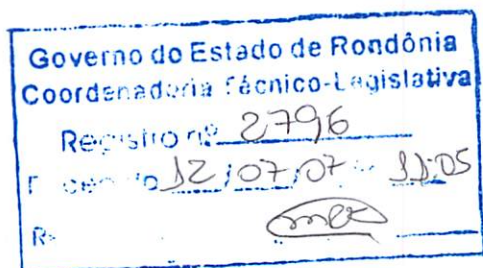 Governo do Estado de Rondônia
Coordenadoria Técnico-Legislativa
Registro nº 2796
12/07/07 11:05